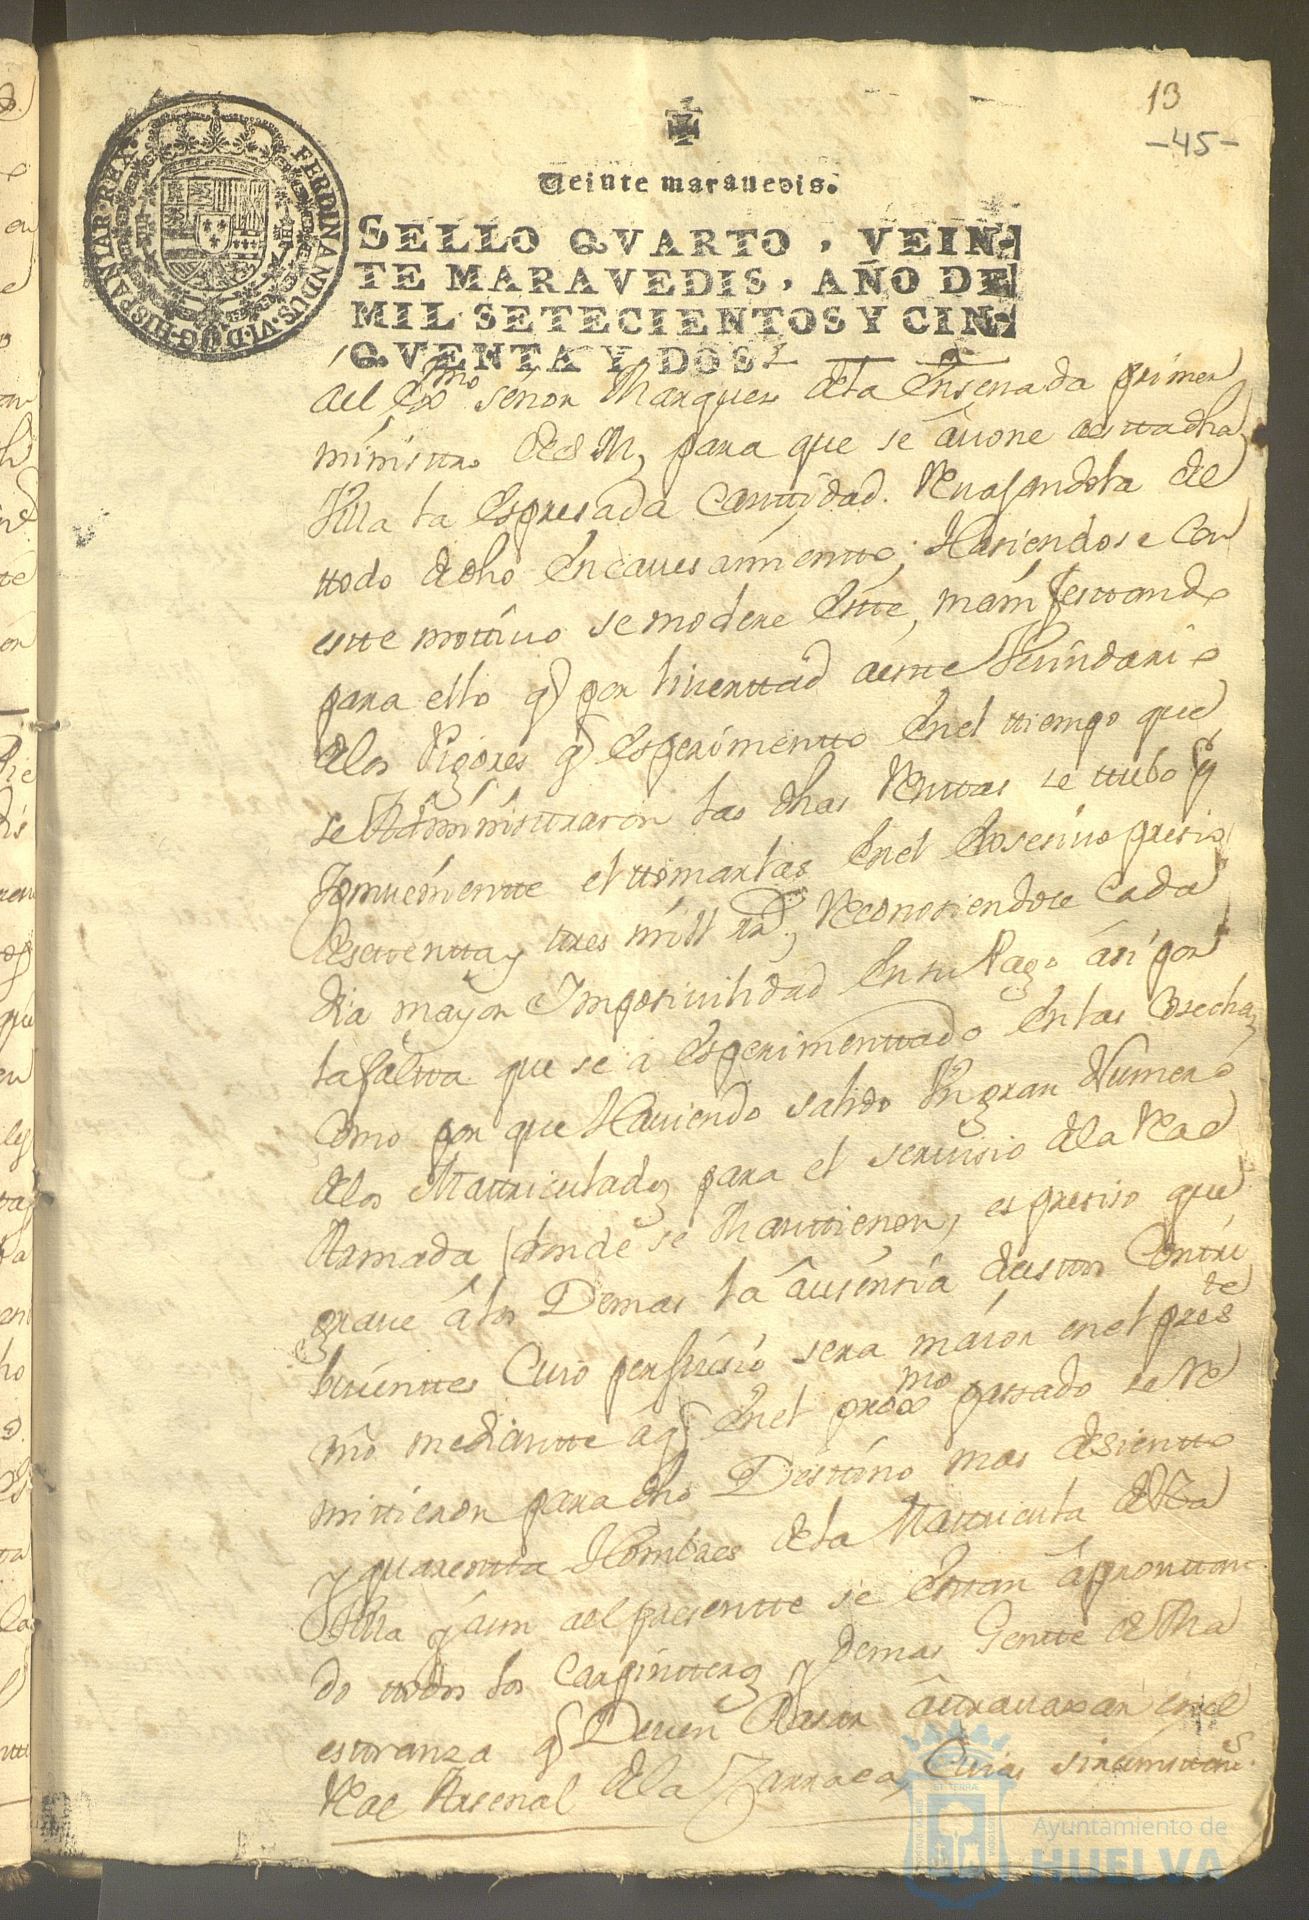 13
-45-
Veinte maravedis.
SELLO QVARTO, VEIN-
TE MARAVEDIS, AÑO DE
MIL SETECIENTOS Y CIN-
QVENTA Y DOS
FERDINANDUS·VI·D·G·HISPANIAR·REX·
del Exmo señor Marques dela Ensenada primer
ministro de S M, para que se auone aesttadha
Villa la Espresada Canttidad. Reuajandola del
ttodo dedho Encauesamientto; Hasiendose con
estte mottiuo se modere Estte, manifestando
para ello q por liuerttad aestte Vesindario
delos Rigores q Esperimentto Enel ttiempo que
se Administraron las dhas Renttas se ttubo p
Comueniente el ttomarlas Enel Exsesiuo presio
desettentta y ttres mill rd, Reconosiendose Cada
dia mayor Imposiuilidad En su Pago asi por
la faltta que se a Esperimenttado En las Cosechas
Como por que Hauiendo salido Vn gran Numero
delos Mattriculados para el seruisio dela Real
Armada (donde se Manttienen, es presiso que
graue á los Demas la ausensia destos Conttri
buienttes Cuio perjuisio sera maior en el presste
mediantte aq Enel proxmo passado se Re
mittieron para dho Desttino mas de Sientto
y quarentta Hombres dela Mattricula de Esta
Villa y aun al presentte se Esttan aprontan
do ttodos los Carpintteros y demas Gentte de Ma
estranza q Deuen Pasar attrauaxar en el
Real Arsenal dela Carraca, Cuias sircunsttans
Ayuntamiento de
HUELVA